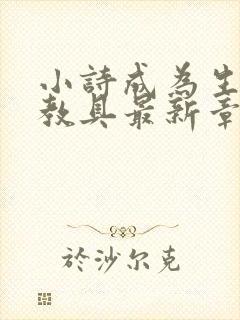 小詩成為生
教具最新章
於沙尔克